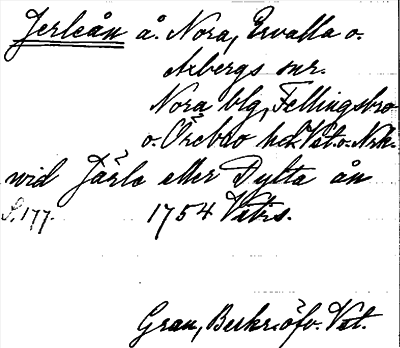 Jerleån å. Nora, Ervalla o.
Arbergs snr.
Nora blg, Fellingsbro
o. Örebro hd. Vst. o. Nrk.
wid Järle eller Dylta ån
S. 177. 1754 Vtbs.
Grau, Beskr. öfv. Vst.